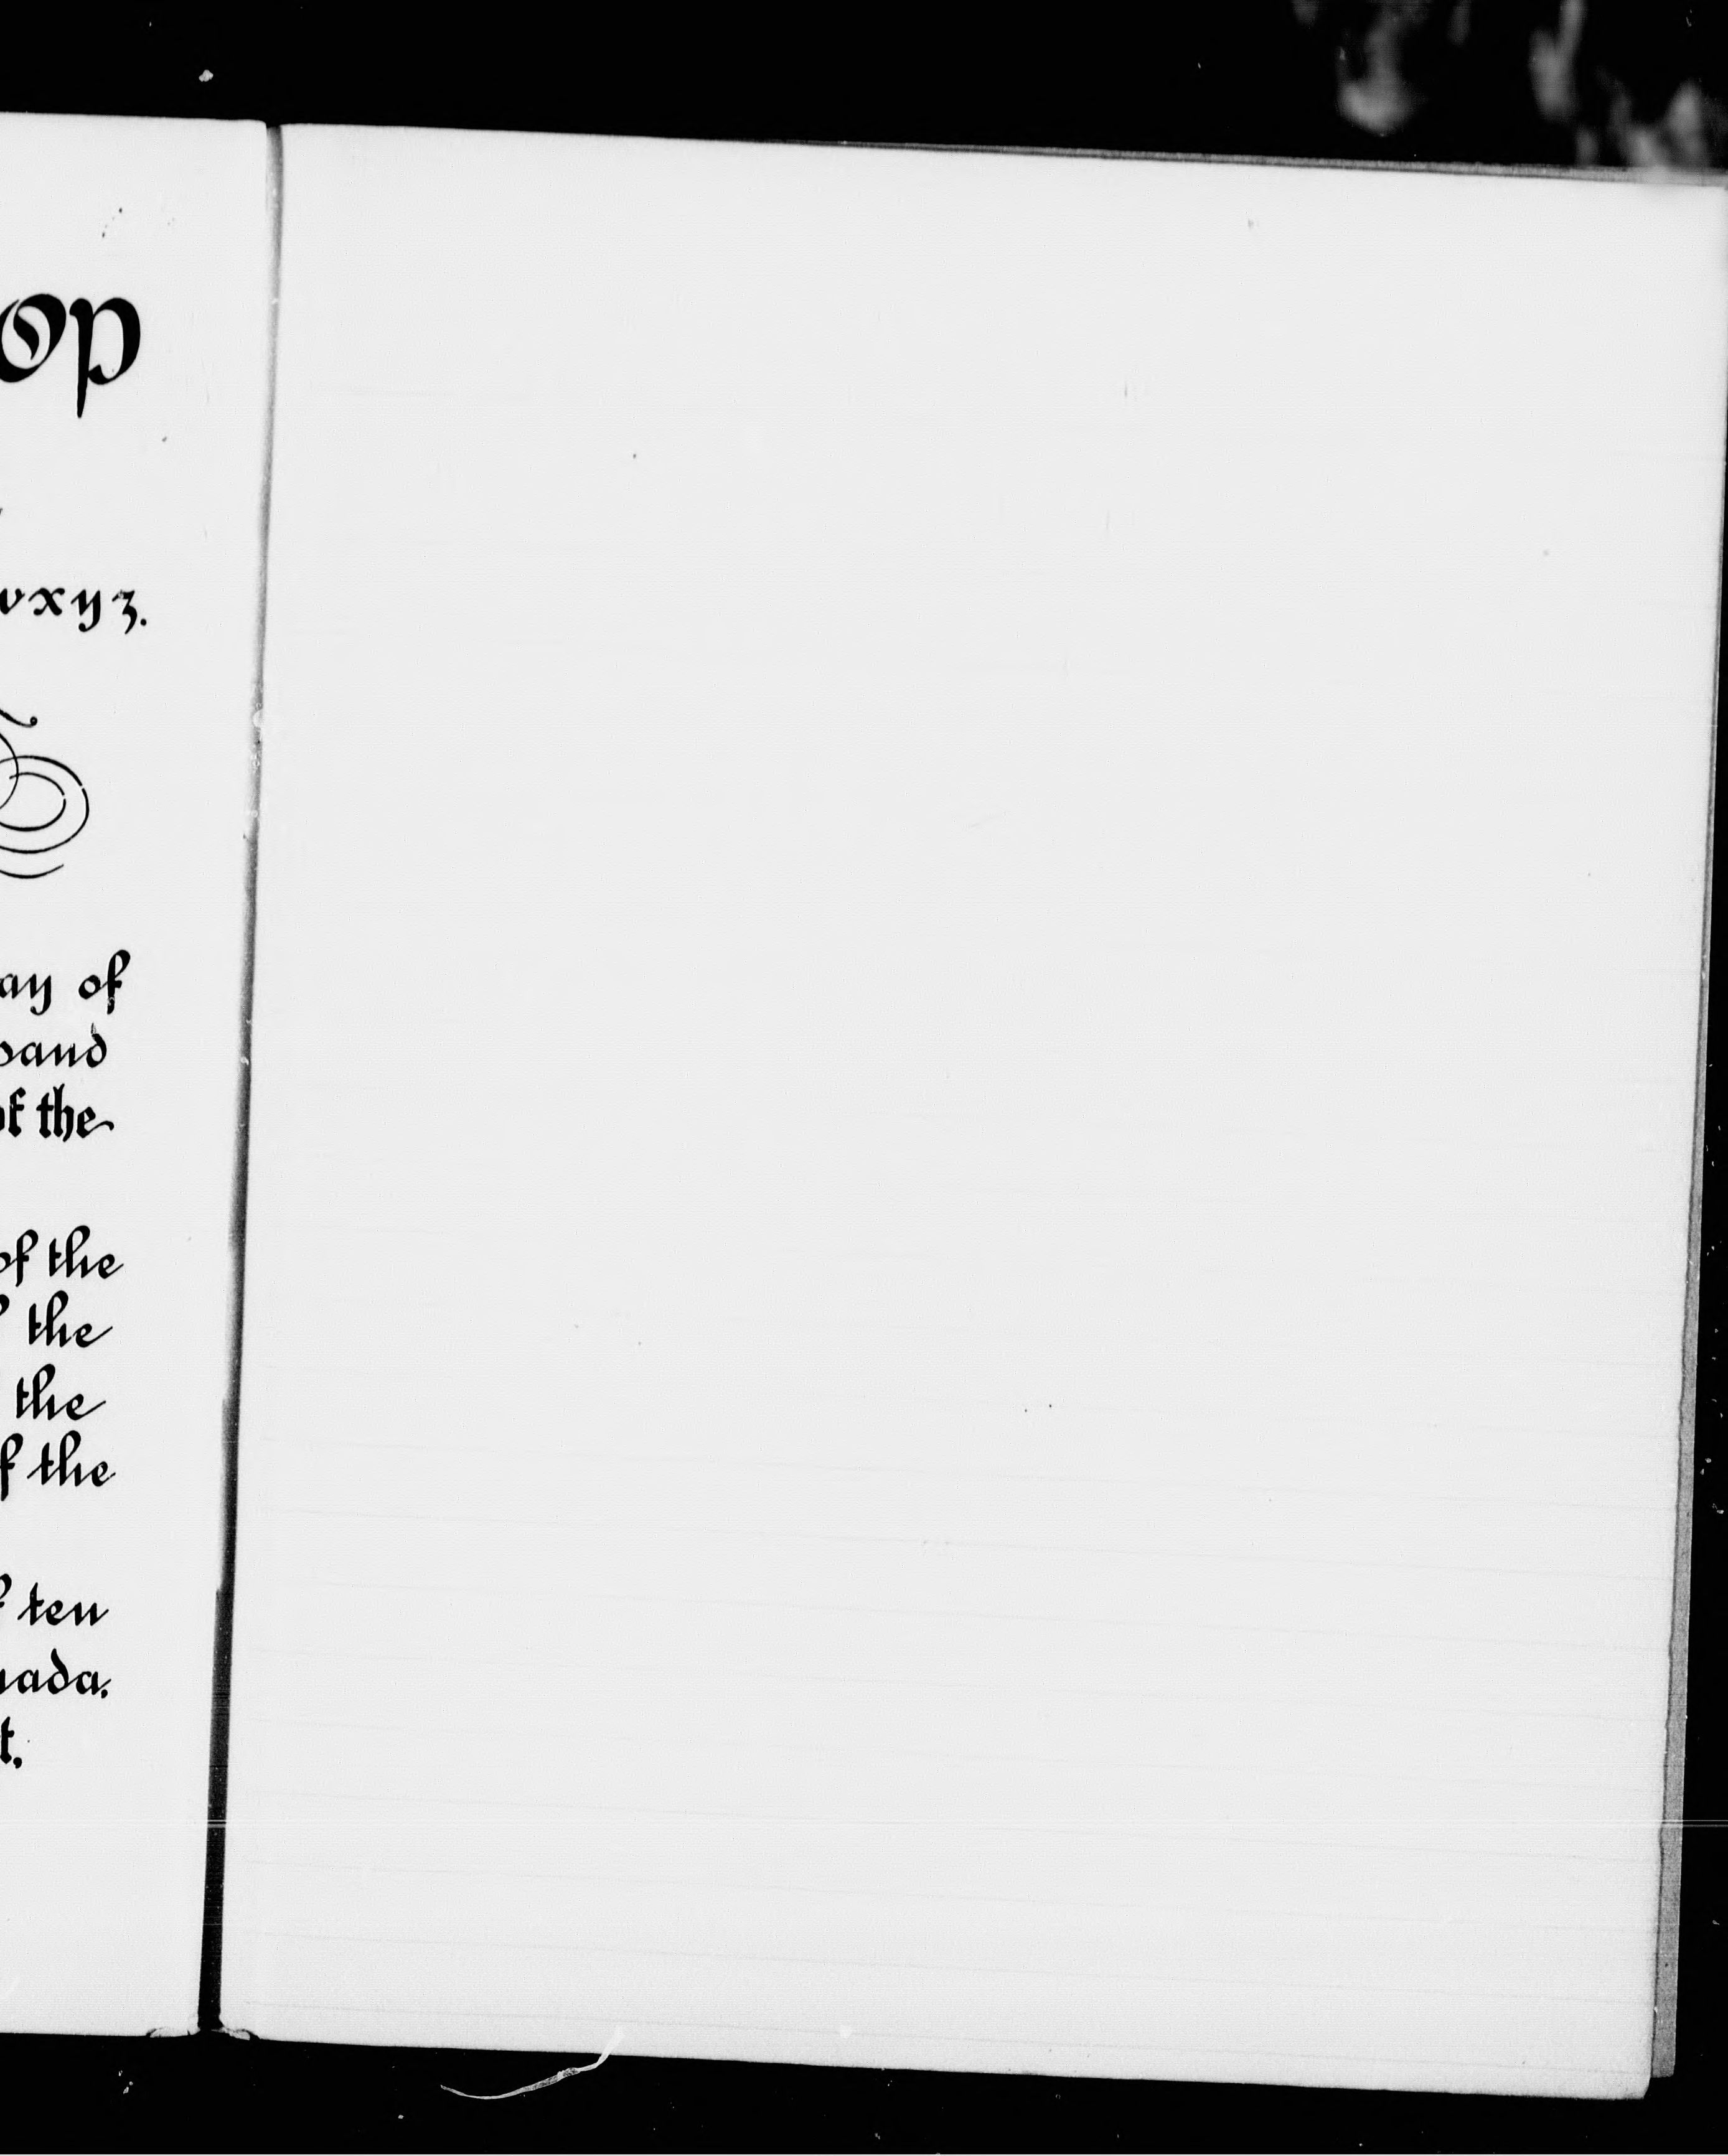 op
vxyz.
ay of
band
of the
of the
the
the
of the
ten
nada.
t.